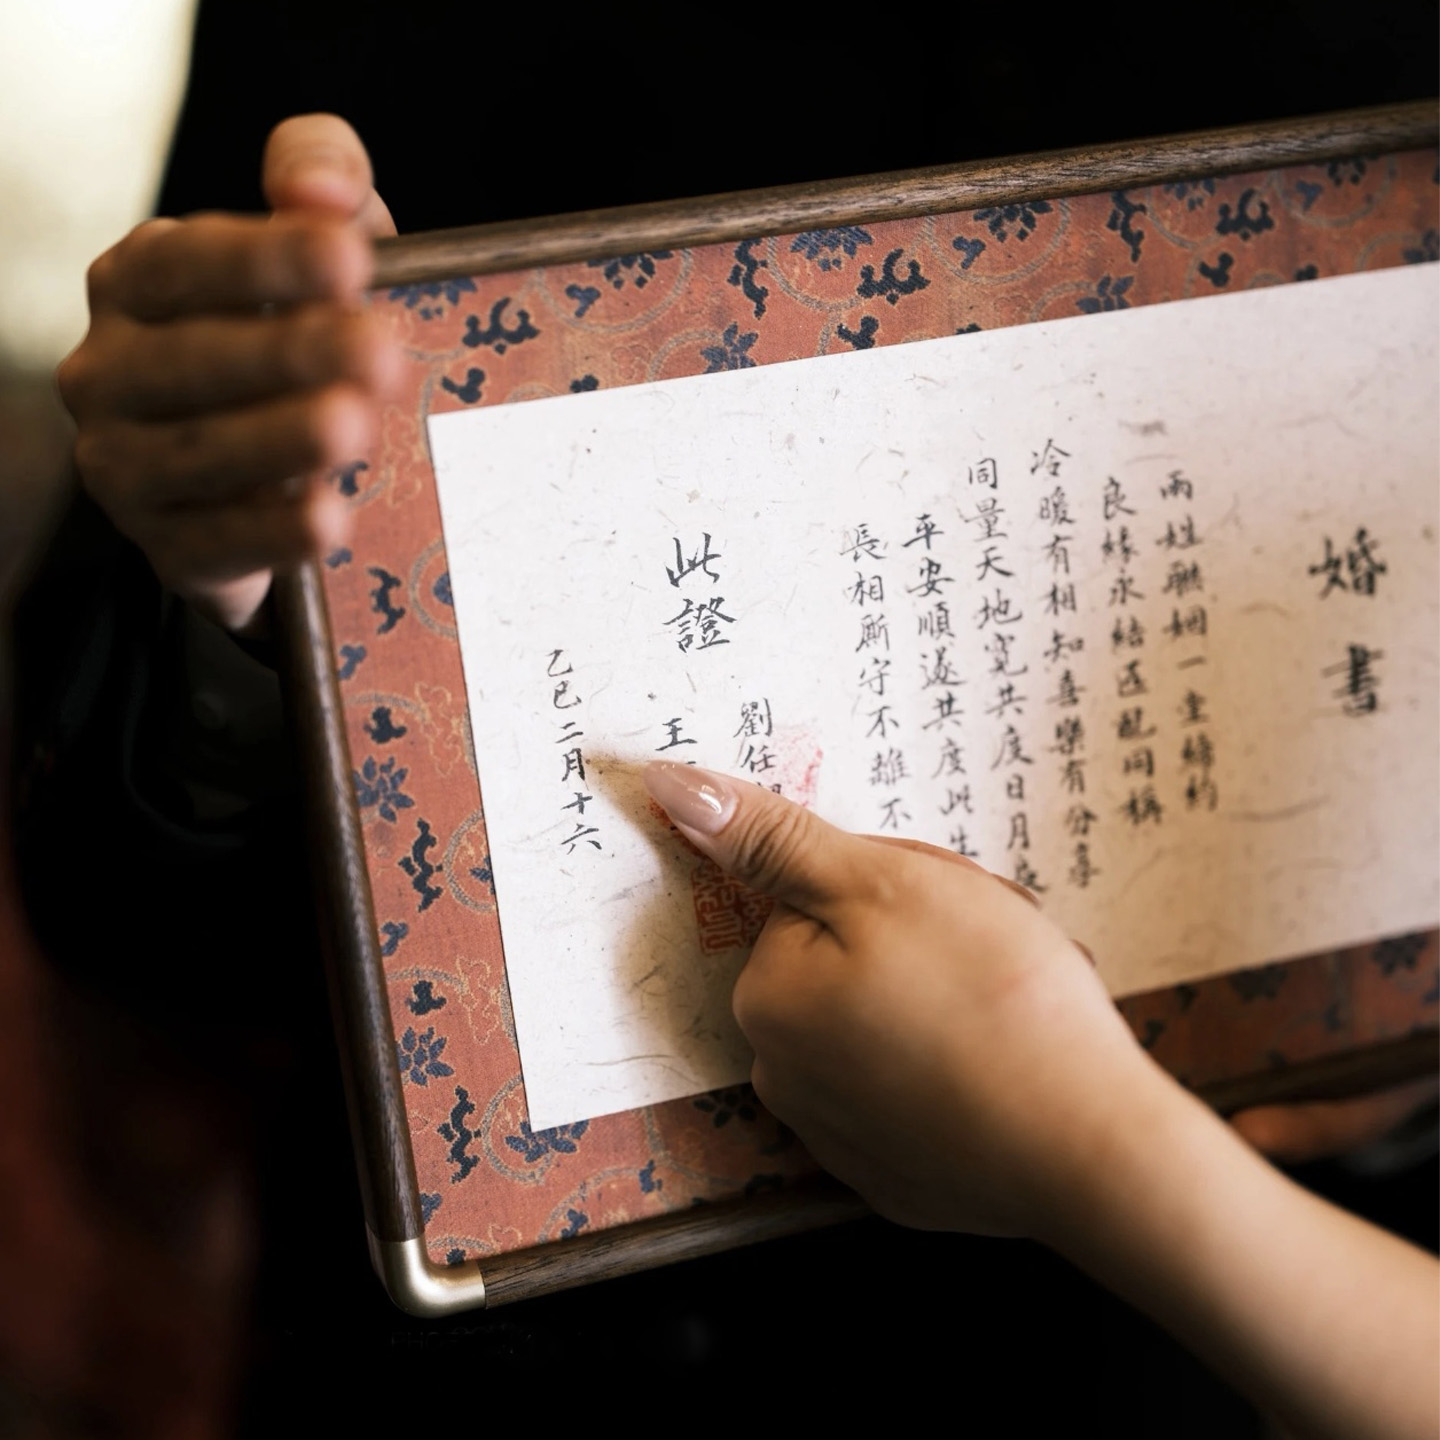 婚書
兩姓聯姻一堂締約
良緣永結匹配同稱
冷暖有相知喜樂有分享
同量天地寬共度日月長
平安順遂共度此生
長相廝守不離不
劉任
王
此證
乙巳二月十六